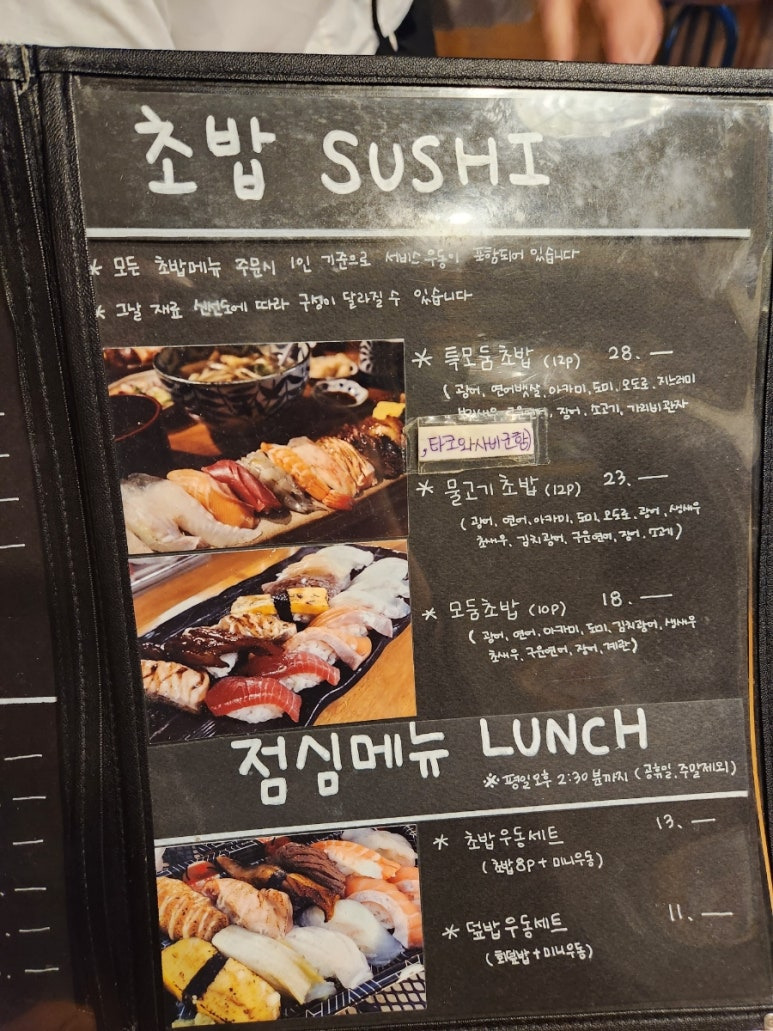 초밥 SUSHI
* 모든 초밥메뉴 주문시 1인 기준으로 서비스우동이 포함되어 있습니다
* 그날 재료 신선도에 따라 구성이 달라질 수 있습니다
* 특모둠초밥 (12p) 28.—
(광어, 연어뱃살, 아카미, 도미, 오도로, 지느러미
장어, 소고기, 가리비관자
, 타코와사비군함)
* 물고기초밥 (12p) 23.—
(광어, 연어, 아카미, 도미, 오도로, 광어, 생새우
초새우, 김치광어, 구운연어, 장어, 소고기)
* 모둠초밥 (10p) 18.—
(광어, 연어, 아카미, 도미, 김치광어, 생새우
초새우, 구운연어, 장어, 계란)
점심메뉴 LUNCH
※ 평일오후 2:30분까지 (공휴일, 주말제외)
* 초밥우동세트 13.—
(초밥8p + 미니우동)
* 덮밥우동세트 11.—
(회덮밥 + 미니우동)